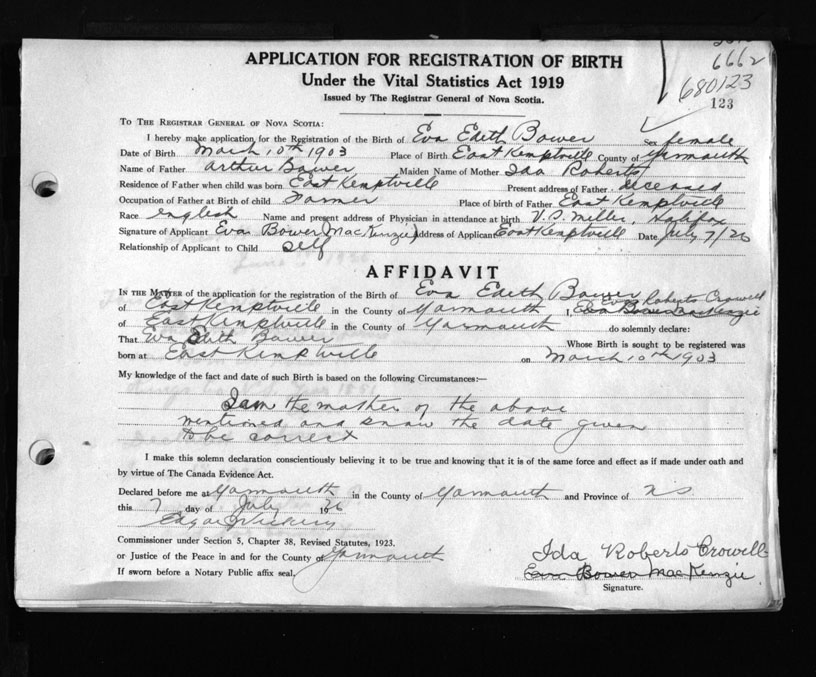 6662
680123
123
APPLICATION FOR REGISTRATION OF BIRTH
Under the Vital Statistics Act 1919
Issued by The Registrar General of Nova Scotia.
To The Registrar General of Nova Scotia:
I hereby make application for the Registration of the Birth of Eva Edith Bower Sex female
Date of Birth March 10th 1903 Place of Birth East Kemptville County of Yarmouth
Name of Father Arthur Bower Maiden Name of Mother Ida Roberts
Residence of Father when child was born East Kemptville Present address of Father deceased
Occupation of Father at Birth of child Farmer Place of birth of Father East Kemptville
Race english Name and present address of Physician in attendance at birth V.P. Miller, Halifax
Signature of Applicant Eva Bower (MacKenzie) Address of Applicant East Kemptville Date July 7/26
Relationship of Applicant to Child self
AFFIDAVIT
In the Matter of the application for the registration of the Birth of Eva Edith Bower
of East Kemptville in the County of Yarmouth I, Eva Bower MacKenzie Ida Roberts Crowell
of East Kemptville in the County of Yarmouth do solemnly declare:
That Eva Edith Bower Whose Birth is sought to be registered was
born at East Kemptville on March 10th 1903
My knowledge of the fact and date of such Birth is based on the following Circumstances:—
I am the mother of the above
mentioned and know the date given
to be correct
I make this solemn declaration conscientiously believing it to be true and knowing that it is of the same force and effect as if made under oath and
by virtue of The Canada Evidence Act.
Declared before me at Yarmouth in the County of Yarmouth and Province of NS
this 7 day of July 1926
Edgar
Commissioner under Section 5, Chapter 38, Revised Statutes, 1923.
or Justice of the Peace in and for the County of Yarmouth
If sworn before a Notary Public affix seal.
Ida Roberts Crowell
Eva Bower MacKenzie
Signature.